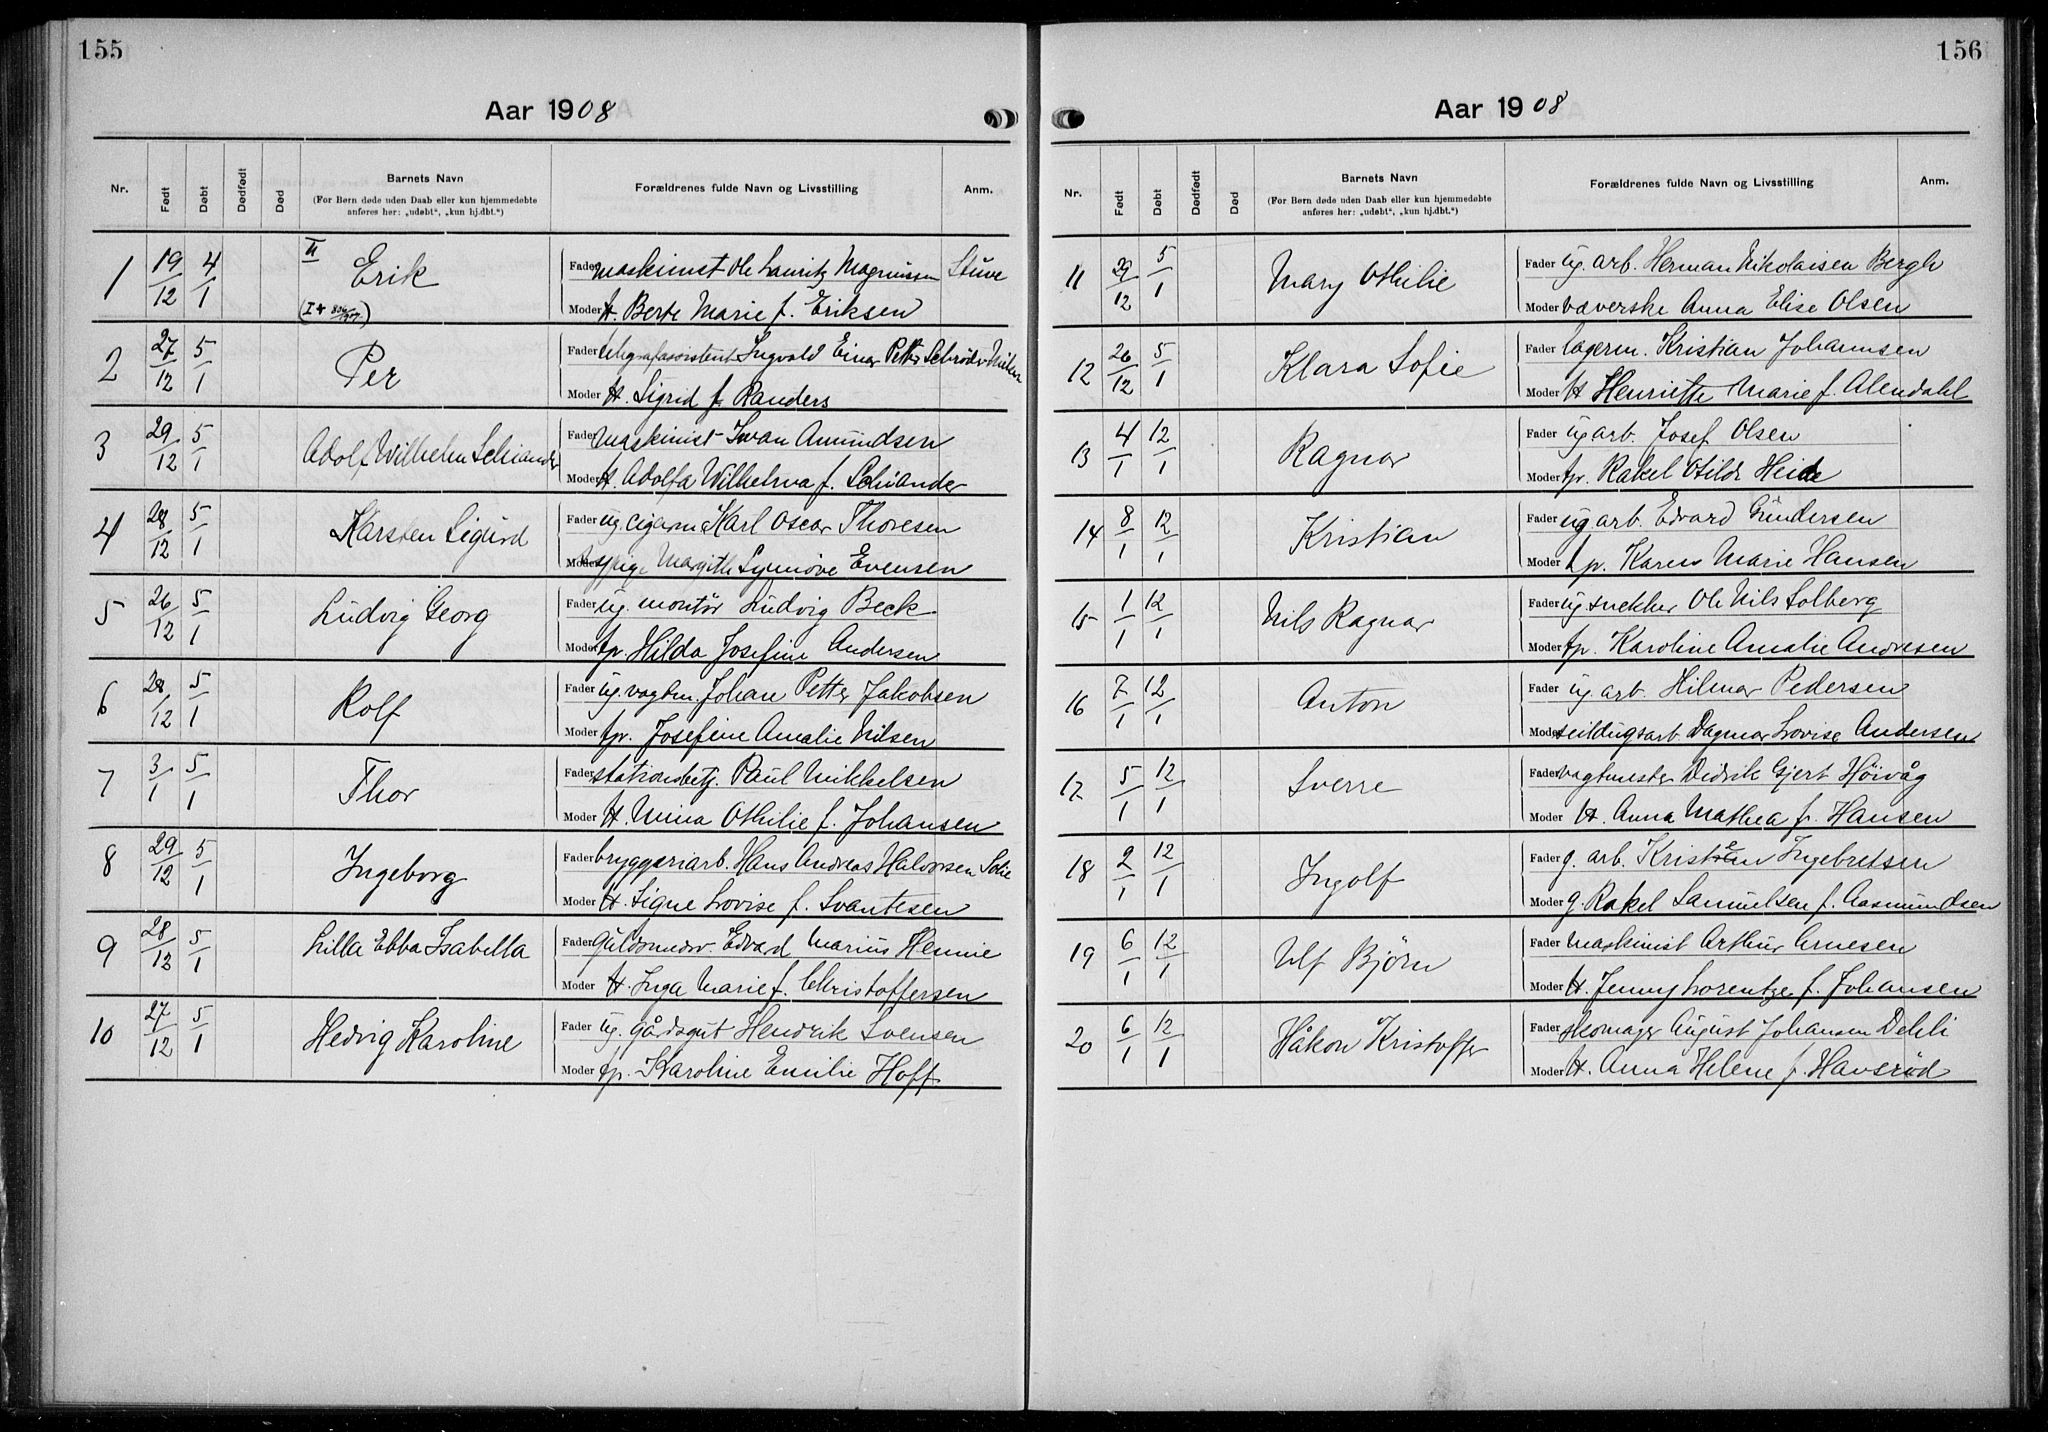 155
Aar 1908
Nr. Født Døbt Dødfødt Død Barnets Navn Forældrenes fulde Navn og Livsstilling Anm.
(For Børn døde uden Daab eller kun hjemmedøbte
anføres her: „udøbt“, „kun hj.dbt.“)
1 19/12 4/1 II Erik Fader maskinist Ole Lauritz Magnussen Stuve
Moder H. Berte Marie f. Eriksen
2 27/12 5/1 Per Fader telegrafassistent Ingvald Einar Petter Schrøder Nilsen
Moder H. Sigrid f. Randers
3 29/12 5/1 Adolf Wilhelm Schiander Fader maskinist Iwan Amundsen
Moder H. Adolfa Wilhelma f. Schiander
4 28/12 5/1 Karsten Sigurd Fader ug. cigarm. Karl Oscar Thoresen
Moder Margith Synnøve Evensen
5 26/12 5/1 Ludvig Georg Fader ug. montør Ludvig Beck
Moder tp. Hilda Josefine Andersen
6 28/12 5/1 Rolf Fader ug. vogtm. Johan Petter Jakobsen
Moder tp. Josefine Amalie Nilsen
7 3/1 5/1 Thor Fader stationsbetj. Paul Mikkelsen
Moder H. Mina Othilie f. Johansen
8 29/12 5/1 Ingeborg Fader bryggeriarb. Hans Andreas Halvorsen Solie
Moder H. Signe Lovise f. Svantesen
9 28/12 5/1 Lilla Ebba Isabella Fader guldsmedsv. Edvard Marius Hennie
Moder H. Inga Marie f. Christoffersen
10 27/12 5/1 Hedvig Karoline Fader ug. gårdsgut Hendrik Svensen
Moder tp. Karoline Emilie Hoff
156
Aar 1908
Nr. Født Døbt Dødfødt Død Barnets Navn Forældrenes fulde Navn og Livsstilling Anm.
(For Børn døde uden Daab eller kun hjemmedøbte
anføres her: „udøbt“, „kun hj.dbt.“)
11 29/12 5/1 Mary Othilie Fader ug. arb. Herman Nikolaisen Bergh
Moder væverske Anna Elise Olsen
12 26/12 5/1 Klara Sofie Fader lagerm. Kristian Johannsen
Moder H. Henriette Marie f. Alendahl
13 4/1 12/1 Ragnar Fader ug arb. Josef Olsen
Moder tp. Rakel Otilde Heide
14 8/1 12/1 Kristian Fader ug. arb. Edvard Gundersen
Moder tp. Karen Marie Hansen
15 1/1 12/1 Nils Ragnar Fader ug snekker Ole Nils Solberg
Moder tp. Karoline Amalie Andresen
16 7/1 12/1 Anton Fader ug. arb. Hilmar Pedersen
Moder seildugsarb. Dagmar Lovise Andersen
17 5/1 12/1 Sverre Fader vagtmester Didrik Gjert Høivåg
Moder H. Anna Mathea f. Hansen
18 2/1 12/1 Ingolf Fader g. arb. Kristen Ingebretsen
Moder g. Rakel Samuelsen f. Aasmundsen
19 6/1 12/1 Ulf Bjørn Fader maskinist Arthur Arnesen
Moder H. Jenny Lorentze f. Johansen
20 6/1 12/1 Håkon Kristoffer Fader skomager August Johansen Dehli
Moder H. Anna Helene f. Hansrød